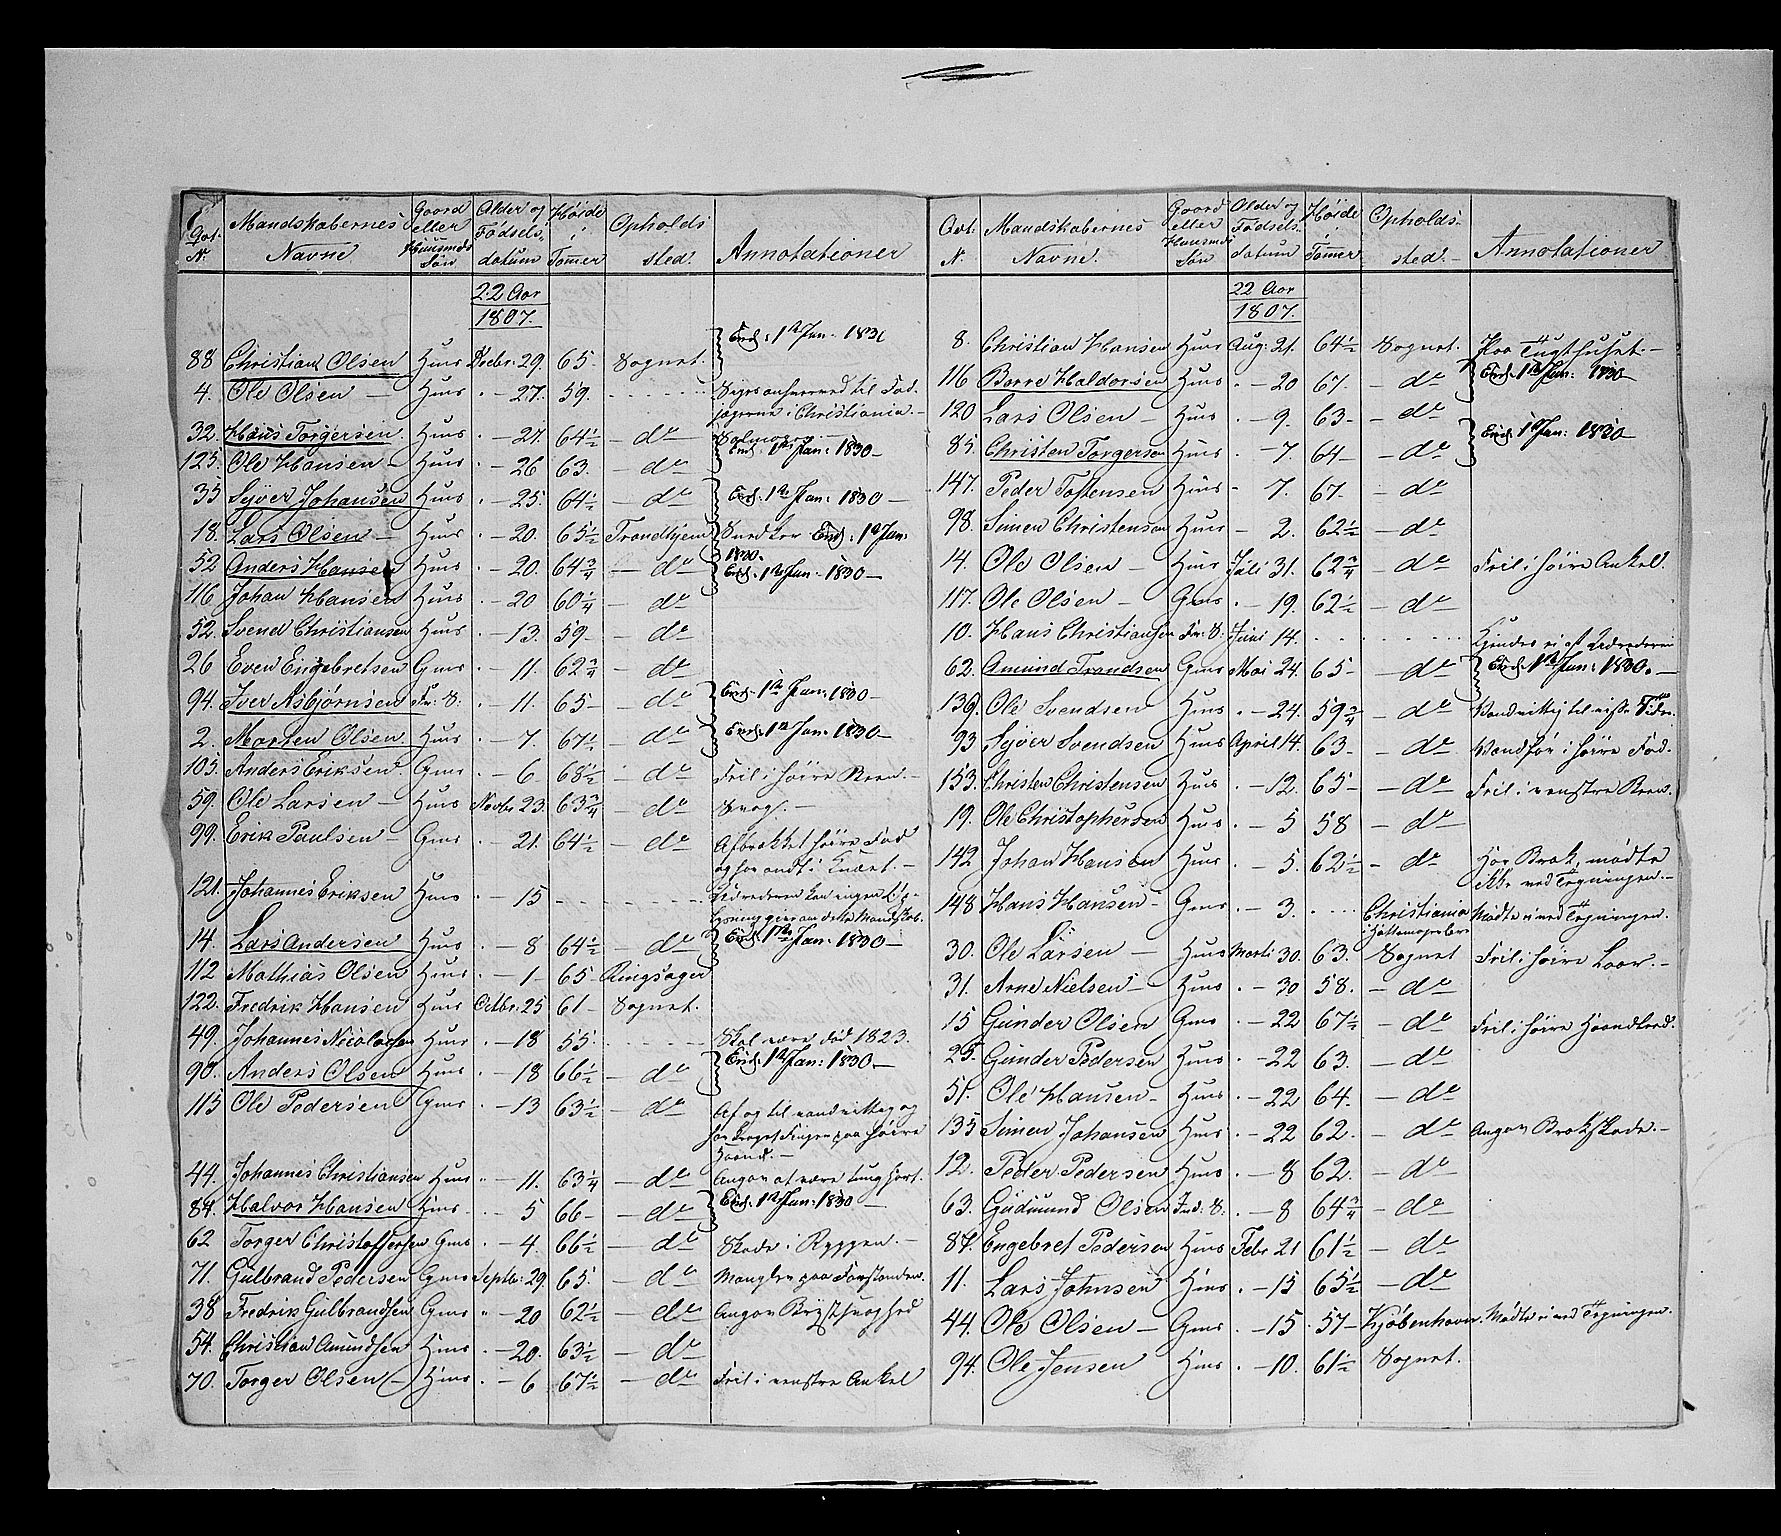 Qvt: N. Mandskabernes Navne Gaard eller Huusmds Søn Alder og Fødsels datum Høide i Tommer Opholds sted. Annotationer
22 Aar
1807.
End: 1ste Jan: 1830
88 Christian Olsen Huus Decbr: 29. 65. Sognet.
4. Ole Olsen — Huus - 27. 59.
jægerne i Christiania. —
32. Hans Torgersen. Huus - 27. 64½ — do
End: 1ste Jan: 1830 —
125. Ole Hansen — Huus - 26 63. — do
35 Syver Johansen Huus - 25. 64½ — do End: 1ste Jan: 1830 —
18. Lars Olsen — Huus - 20. 65½ Trondhjem Snedker End: 1ste Jan: 1830.
52 Anders Hansen Huus - 20. 64¾ — do End: 1ste Jan: 1830 —
116 Johan Hansen Huus - 20 60¼ — do
52. Svend Christiansen Huus - 13. 59 — — do
26 Even Engebretsen Gms - 11. 62¾ — do
94. Iver Asbjørnsen Fr: S: - 11. 65 — — do End: 1ste Jan: 1830 —
2. Morten Olsen. Huus - 7. 67½ — do End: 1ste Jan: 1830 —
105. Anders Eriksen. Gms - 6 68½ — do Feil i høire Been. —
59. Ole Larsen — Huus Novbr. 23. 63¾ — do Svag. —
99. Erik Paulsen — Gms - 21. 64½ — do Afbrækket høire Fod
og har ondt i Knæet. —
121. Johannes Eriksen Huus - 15
14. Lars Andersen Huus - 8 64½ — do End: 1ste Jan: 1830 —
112 Mathias Olsen Huus - 1 65 Ringsager
122. Fredrik Hansen Huus Octbr. 25 61 — Sognet.
49. Johannes Nicolaysen Huus - 18 55. Skal være død 1823.
90. Anders Olsen Huus - 18 66½ — do End: 1ste Jan: 1830 —
115 Ole Pedersen Gms - 13 63½ — do Af og til vandvittig og
har Finger paa høire
Haand. —
44. Johannes Christiansen Huus - 11. 63¼ — do Angav at være tunghørt.
84. Halvor Hansen Huus - 5 66 — — do End: 1ste Jan: 1830 —
62 Torger Christoffersen Gms - 4. 66½ — do Skade i Ryggen. —
71. Gulbrand Pedersen Gms Septbr: 29. 65. — do Mangler paa Forstanden.
38 Fredrik Gulbrandsen Gms - 20 62½ — do Angav Brystsvaghed
54. Christian Amundsen Huus - 20. 63½ — do
70. Torger Olsen — Huus - 6 67½ — do Feil i venstre Ankel
Qvt: N. Mandskabernes Navne. Gaard eller Huusmds Søn Alder og Fødsels datum Høide i Tommer Opholds sted. — Annotationer
22 Aar
1807.
8. Christian Hansen Huus Aug: 21. 64½ Sognet. Paa Tugthuset. —
116 Borre Haldorsen Huus - 20 67. — do End: 1ste Jan: 1830 —
120 Lars Olsen — Huus - 9. 63 — — do
85. Christen Torgersen Huus - 7. 64 — — do End: 1ste Jan: 1830 —
147. Peder Tostensen Huus - 7. 67. — do
98. Simen Christensen Huus - 2. 62½ — do
14. Ole Olsen — Huus Juli 31. 62¾ — do Feil i høire Ankel.
117. Ole Olsen — Gms - 19. 62½ — do
10. Hans Christiansen Fr: S. Juni 14. Kjendes ei af
62. Amund Trondsen Gms Mai 24. 65 — — do End: 1ste Jan: 1830. —
139. Ole Svendsen Huus - 24. 59¾ — do Vandvittig til visse Tider.
93 Syver Svendsen Huus April 14. 63 — — do Vanfør i høire Fod.
153. Christen Christensen Huus - 12. 65 — — do Feil i venstre Been.
19. Ole Christophersen Huus - 5 58 — do
142 Johan Hansen Huus - 5. 62½ — do Har Brok, mødte
ikke ved Tegningen. —
148 Hans Hansen — Gms - 3. Christiania Mødte ei ved Tegningen.
i Hattemagerlære
30. Ole Larsen — Huus Marts 30. 63. Sognet Feil i høire Laar. —
31. Arne Nielsen — Huus - 30 58. — do
15 Gunder Olsen Gms - 22 67½ — do Feil i høire Haandled.
25. Gunder Pedersen Huus - 22 63. — do
51. Ole Hansen — Huus - 22 64. — do
135 Simen Johansen Huus - 22 62. — do Angav Brokskade. —
12. Peder Pedersen Huus - 8 62. — do
63. Gudmund Olsen Ind: S: - 8 64¾ — do
87. Engebret Pedersen Huus Febr 21 61½ — do
11. Lars Johnsen Huus - 15 65½ — do
44. Ole Olsen — Gms - 15. 57 — Kjøbenhavn. Mødte ei ved Tegningen.
94. Ole Jensen Huus - 10. 61½ Sognet.